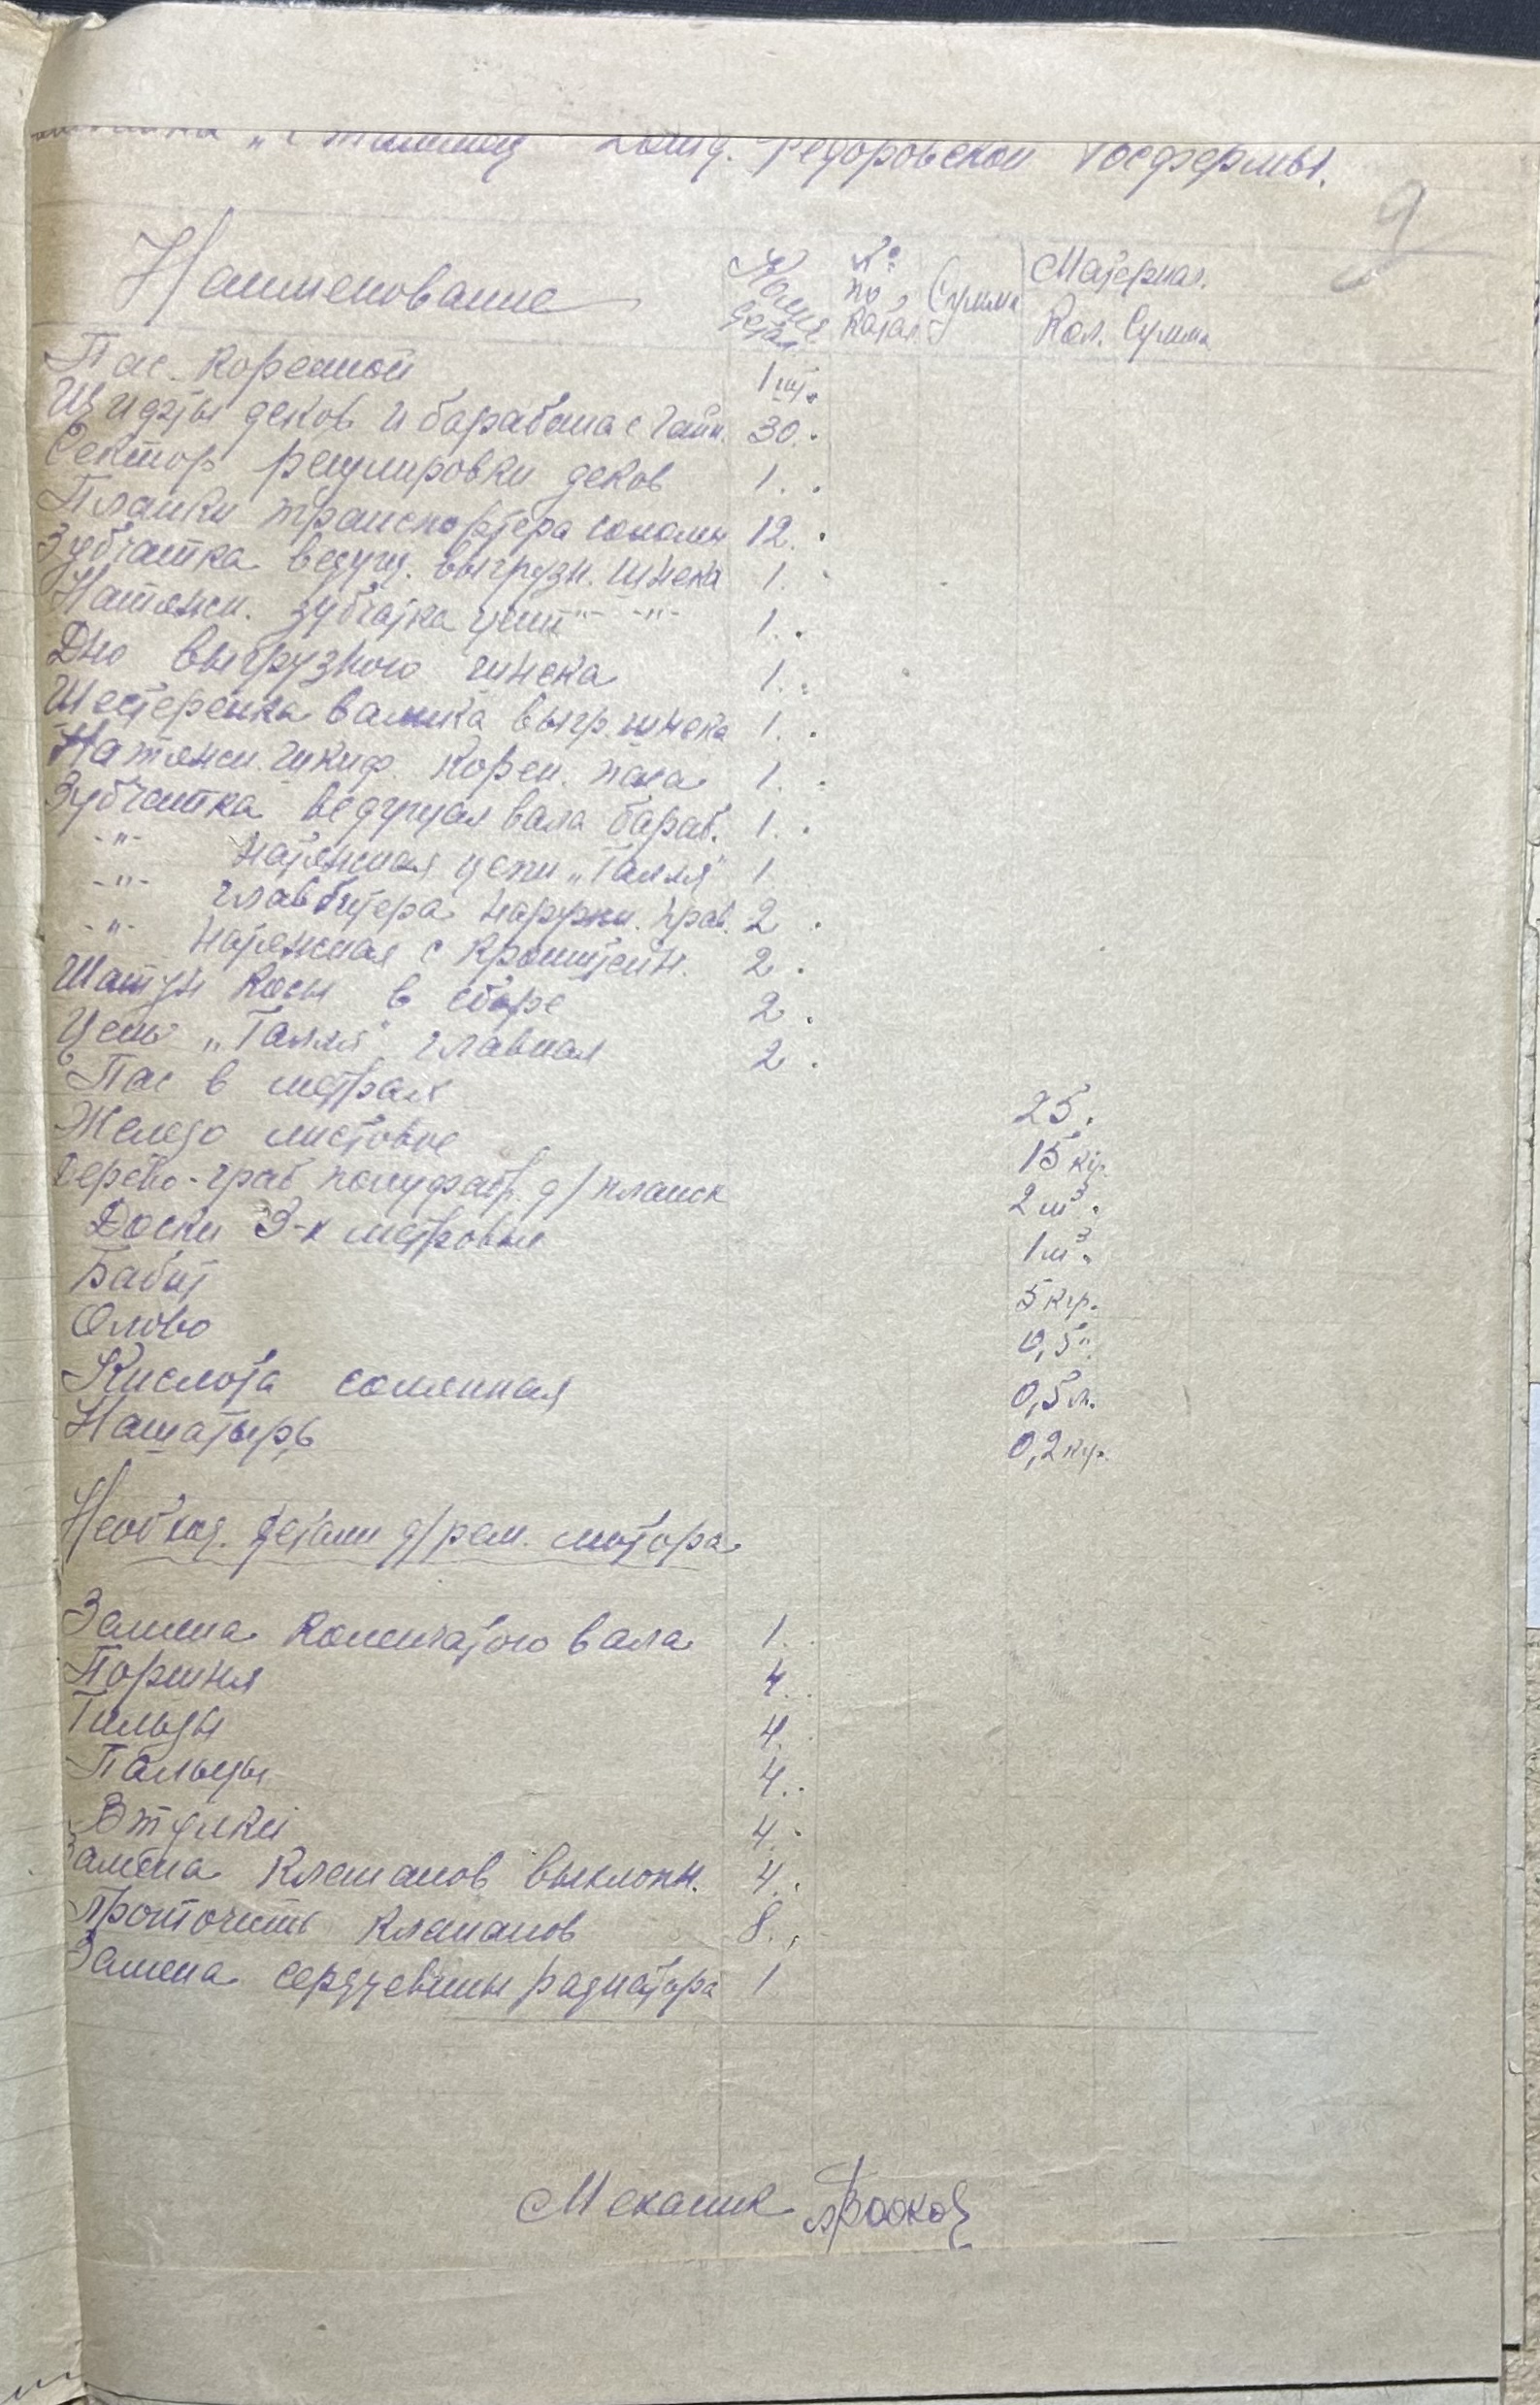 Федоровской Госфермы.
9
Наименование Колич. детал. № по катал. Сумма Материал. Кол. Сумма
Пас кореной 1 шт.
деков и барабана с гайк. 30.
Сектор регулировки деков 1.
Планки транспортера соломы 12.
Зубчатка ведущ. выгрузн. шнека 1.
Натяжн. зубчатка цепи -"- -"- 1.
Дно выгрузного шнека 1.
Шестеренка валика выгр. шнека 1.
Натяжн. шкиф. корен. паса 1.
Зубчатка ведущая вала бараб. 1.
-"- натяжная цепи „Галля" 1
-"- главбитера наружн. прав. 2
-"- натяжная с кронштейн. 2.
Шатун косы в сборе 2.
Цепь „Галля" главная 2.
Пас в метрах 25.
Железо листовое 15 кгр.
Дерево-граб полуфабр. д/планок 2 м³.
Доски 3-х метровые 1 м³.
Бабит 5 кгр.
Олово 0,5".
Кислота солянная 0,5 л.
Нашатырь 0,2 кгр.
Необход. детали д/рем. мотора
Замена коленчатого вала 1.
Поршня 4.
Гильзы 4.
Пальцы 4.
Втулки 4.
Замена клапанов выхлопн. 4.
Проточить клапанов 8.
Замена сердцевины радиатора 1
Механик